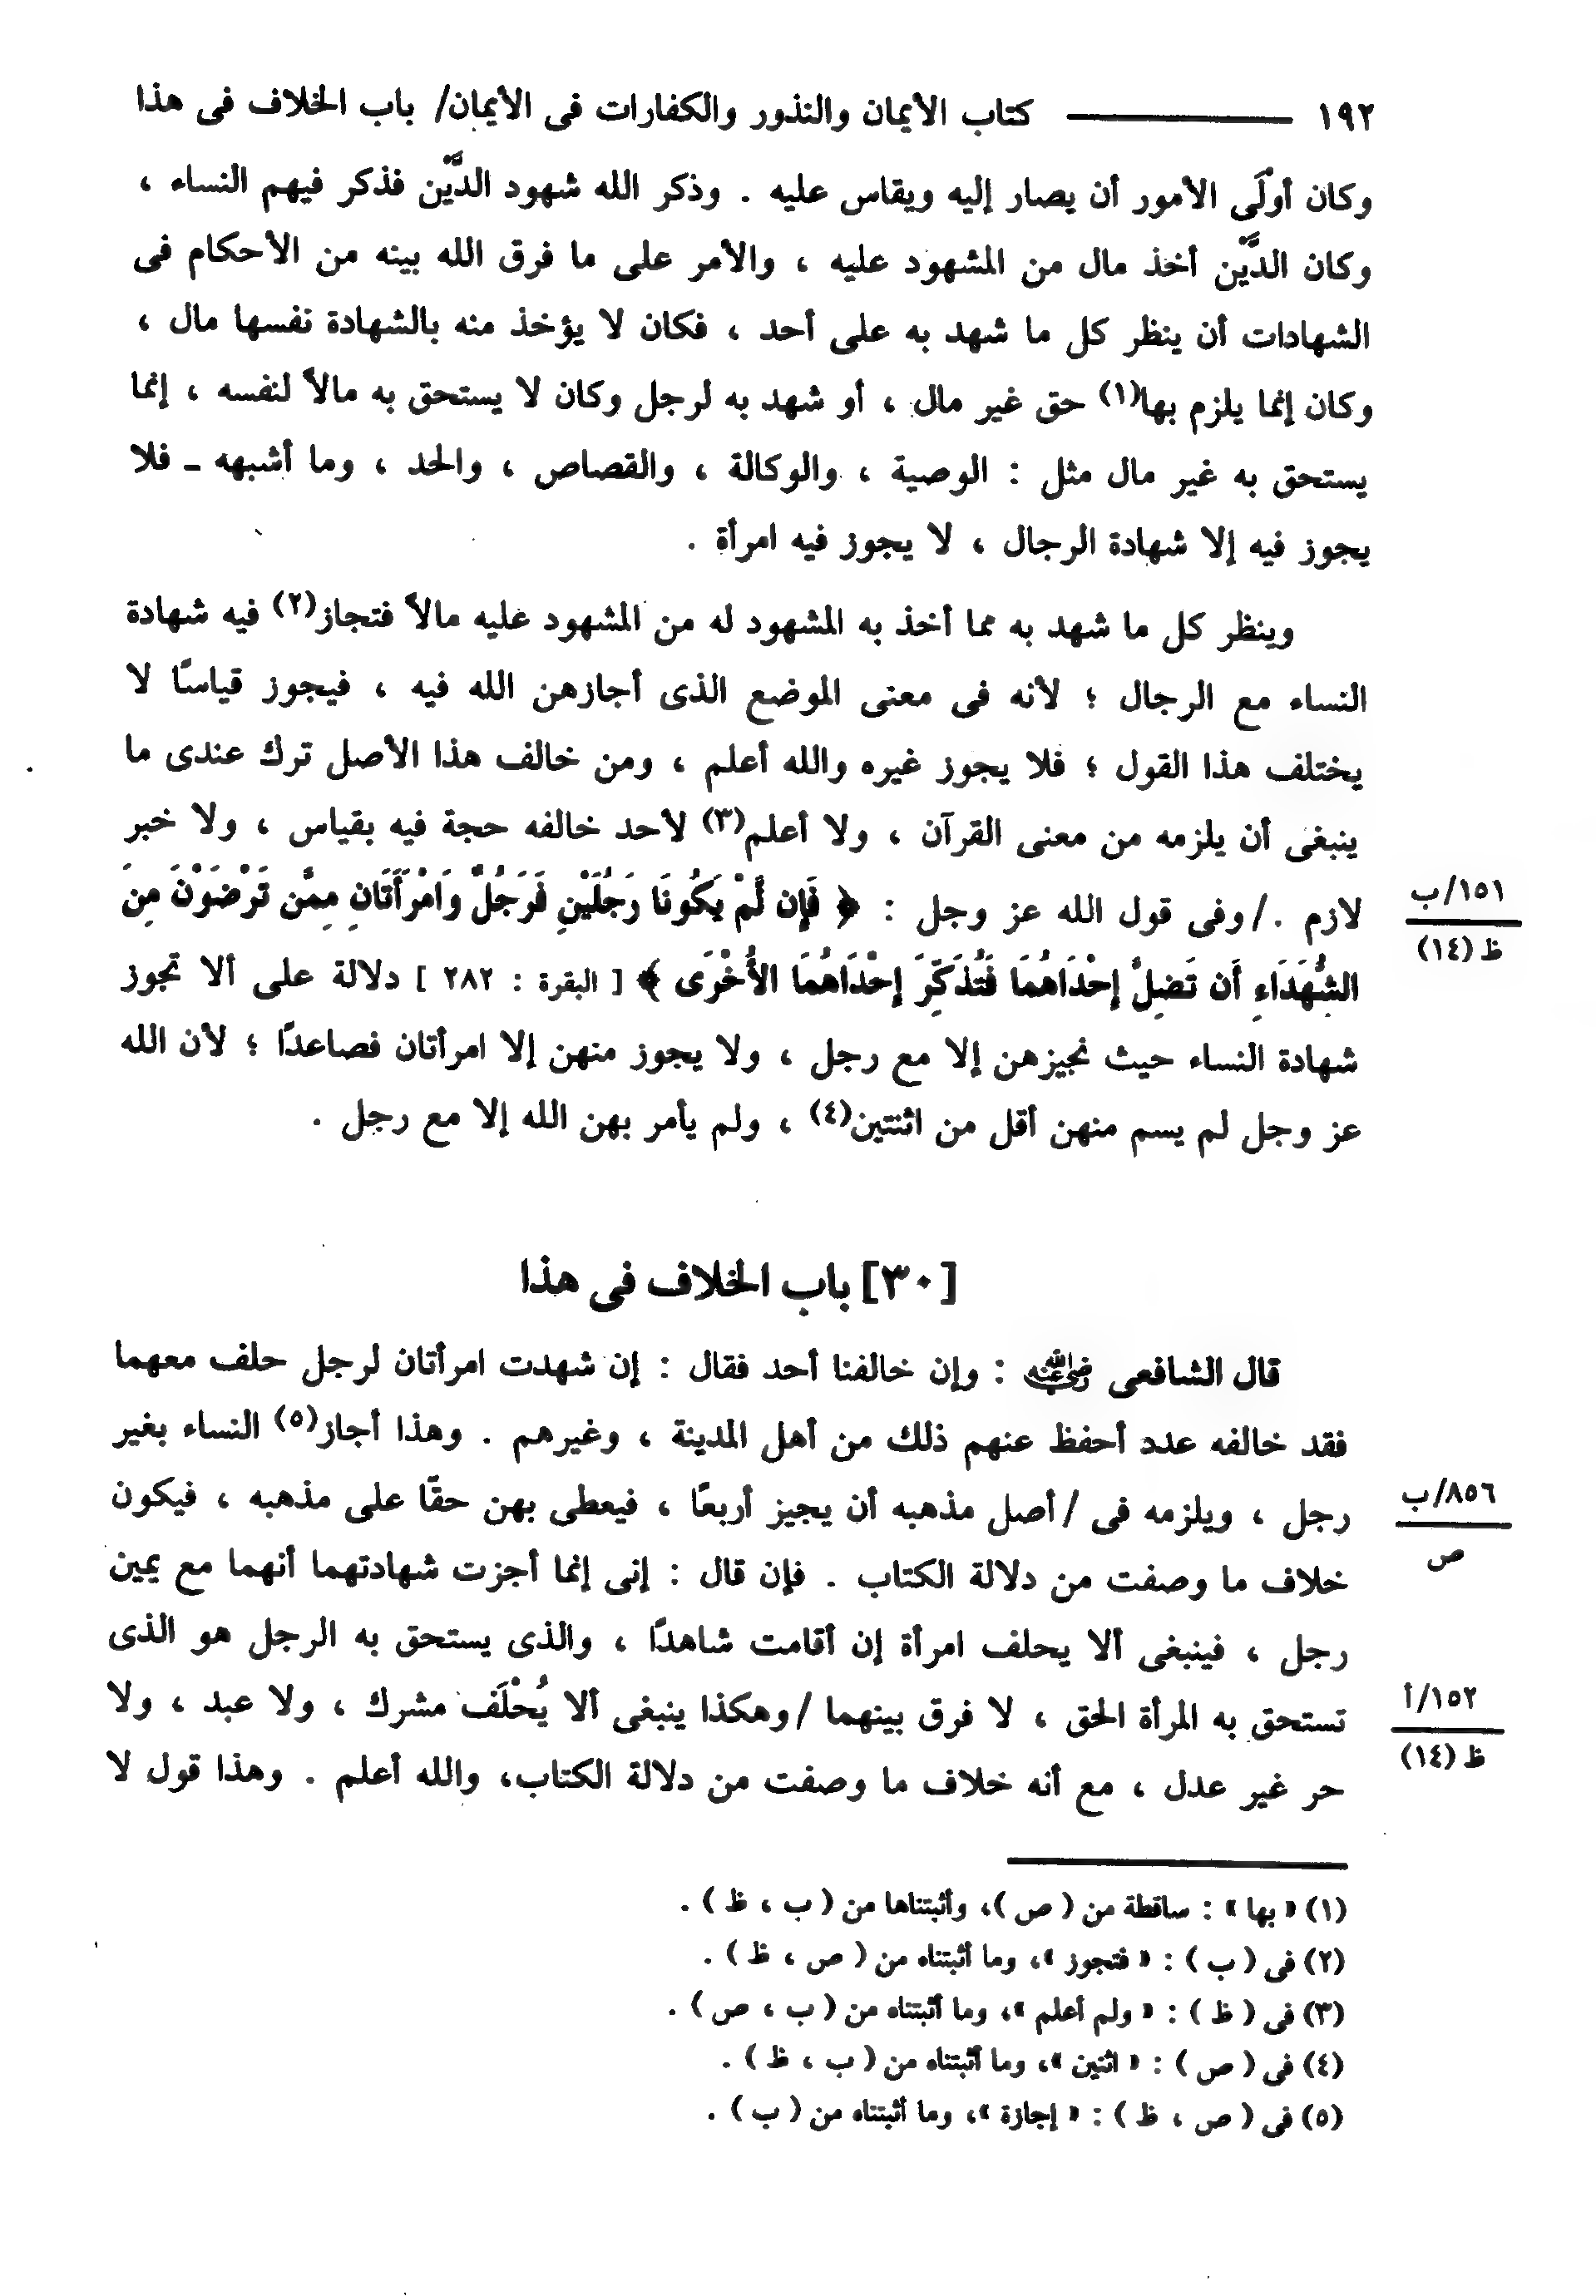 ١٩٢ ــــــــــ كتاب الأيمان والنذور والكفارات فى الأيمان/ باب الخلاف فى هذا
وكان أولَى الأمور أن يصار إليه ويقاس عليه . وذكر الله شهود الدَّيْن فذكر فيهم النساء ،
وكان الدَّيْن أخذ مال من المشهود عليه ، والأمر على ما فرق الله بينه من الأحكام فى
الشهادات أن ينظر كل ما شهد به على أحد ، فكان لا يؤخذ منه بالشهادة نفسها مال ،
وكان إنما يلزم بها(١) حق غير مال ، أو شهد به لرجل وكان لا يستحق به مالاً لنفسه ، إنما
يستحق به غير مال مثل : الوصية ، والوكالة ، والقصاص ، والحد ، وما أشبهه ـ فلا
يجوز فيه إلا شهادة الرجال ، لا يجوز فيه امرأة .
وينظر كل ما شهد به مما أخذ به المشهود له من المشهود عليه مالاً فتجاز(٢) فيه شهادة
النساء مع الرجال ؛ لأنه فى معنى الموضع الذى أجازهن الله فيه ، فيجوز قياسًا لا
يختلف هذا القول ؛ فلا يجوز غيره والله أعلم ، ومن خالف هذا الأصل ترك عندى ما
ينبغى أن يلزمه من معنى القرآن ، ولا أعلم(٣) لأحد خالفه حجة فيه بقياس ، ولا خبر
لازم . /وفى قول الله عز وجل : ﴿ فَإِن لَّمْ يَكُونَا رَجُلَيْنِ فَرَجُلٌ وَامْرَأَتَانِ مِمَّن تَرْضَوْنَ مِنَ
١٥١/ب
ظ (١٤)
الشُّهَدَاءِ أَن تَضِلَّ إِحْدَاهُمَا فَتُذَكِّرَ إِحْدَاهُمَا الأُخْرَى ﴾ [ البقرة : ٢٨٢ ] دلالة على ألا تجوز
شهادة النساء حيث نجيزهن إلا مع رجل ، ولا يجوز منهن إلا امرأتان فصاعدًا ؛ لأن الله
عز وجل لم يسم منهن أقل من اثنتين(٤) ، ولم يأمر بهن الله إلا مع رجل .
[٣٠] باب الخلاف فى هذا
قال الشافعى رضي الله عنه : وإن خالفنا أحد فقال : إن شهدت امرأتان لرجل حلف معهما
فقد خالفه عدد أحفظ عنهم ذلك من أهل المدينة ، وغيرهم . وهذا أجاز(٥) النساء بغير
رجل ، ويلزمه فى / أصل مذهبه أن يجيز أربعًا ، فيعطى بهن حقًا على مذهبه ، فيكون
٨٥٦/ب
ص
خلاف ما وصفت من دلالة الكتاب . فإن قال : إنى إنما أجزت شهادتهما أنهما مع يمين
رجل ، فينبغى ألا يحلف امرأة إن أقامت شاهدًا ، والذى يستحق به الرجل هو الذى
تستحق به المرأة الحق ، لا فرق بينهما /وهكذا ينبغى ألا يُحْلَف مشرك ، ولا عبد ، ولا
١٥٢/أ
ظ (١٤)
حر غير عدل ، مع أنه خلاف ما وصفت من دلالة الكتاب، والله أعلم . وهذا قول لا
(١) « بها » : ساقطة من ( ص )، وأثبتناها من ( ب ، ظ ) .
(٢) فى ( ب ) : « فتجوز »، وما أثبتناه من ( ص ، ظ ) .
(٣) فى ( ظ ) : « ولم أعلم »، وما أثبتناه من ( ب ، ص ) .
(٤) فى ( ص ) : « اثنين »، وما أثبتناه من ( ب ، ظ ) .
(٥) فى ( ص ، ظ ) : « إجازة »، وما أثبتناه من ( ب ) .